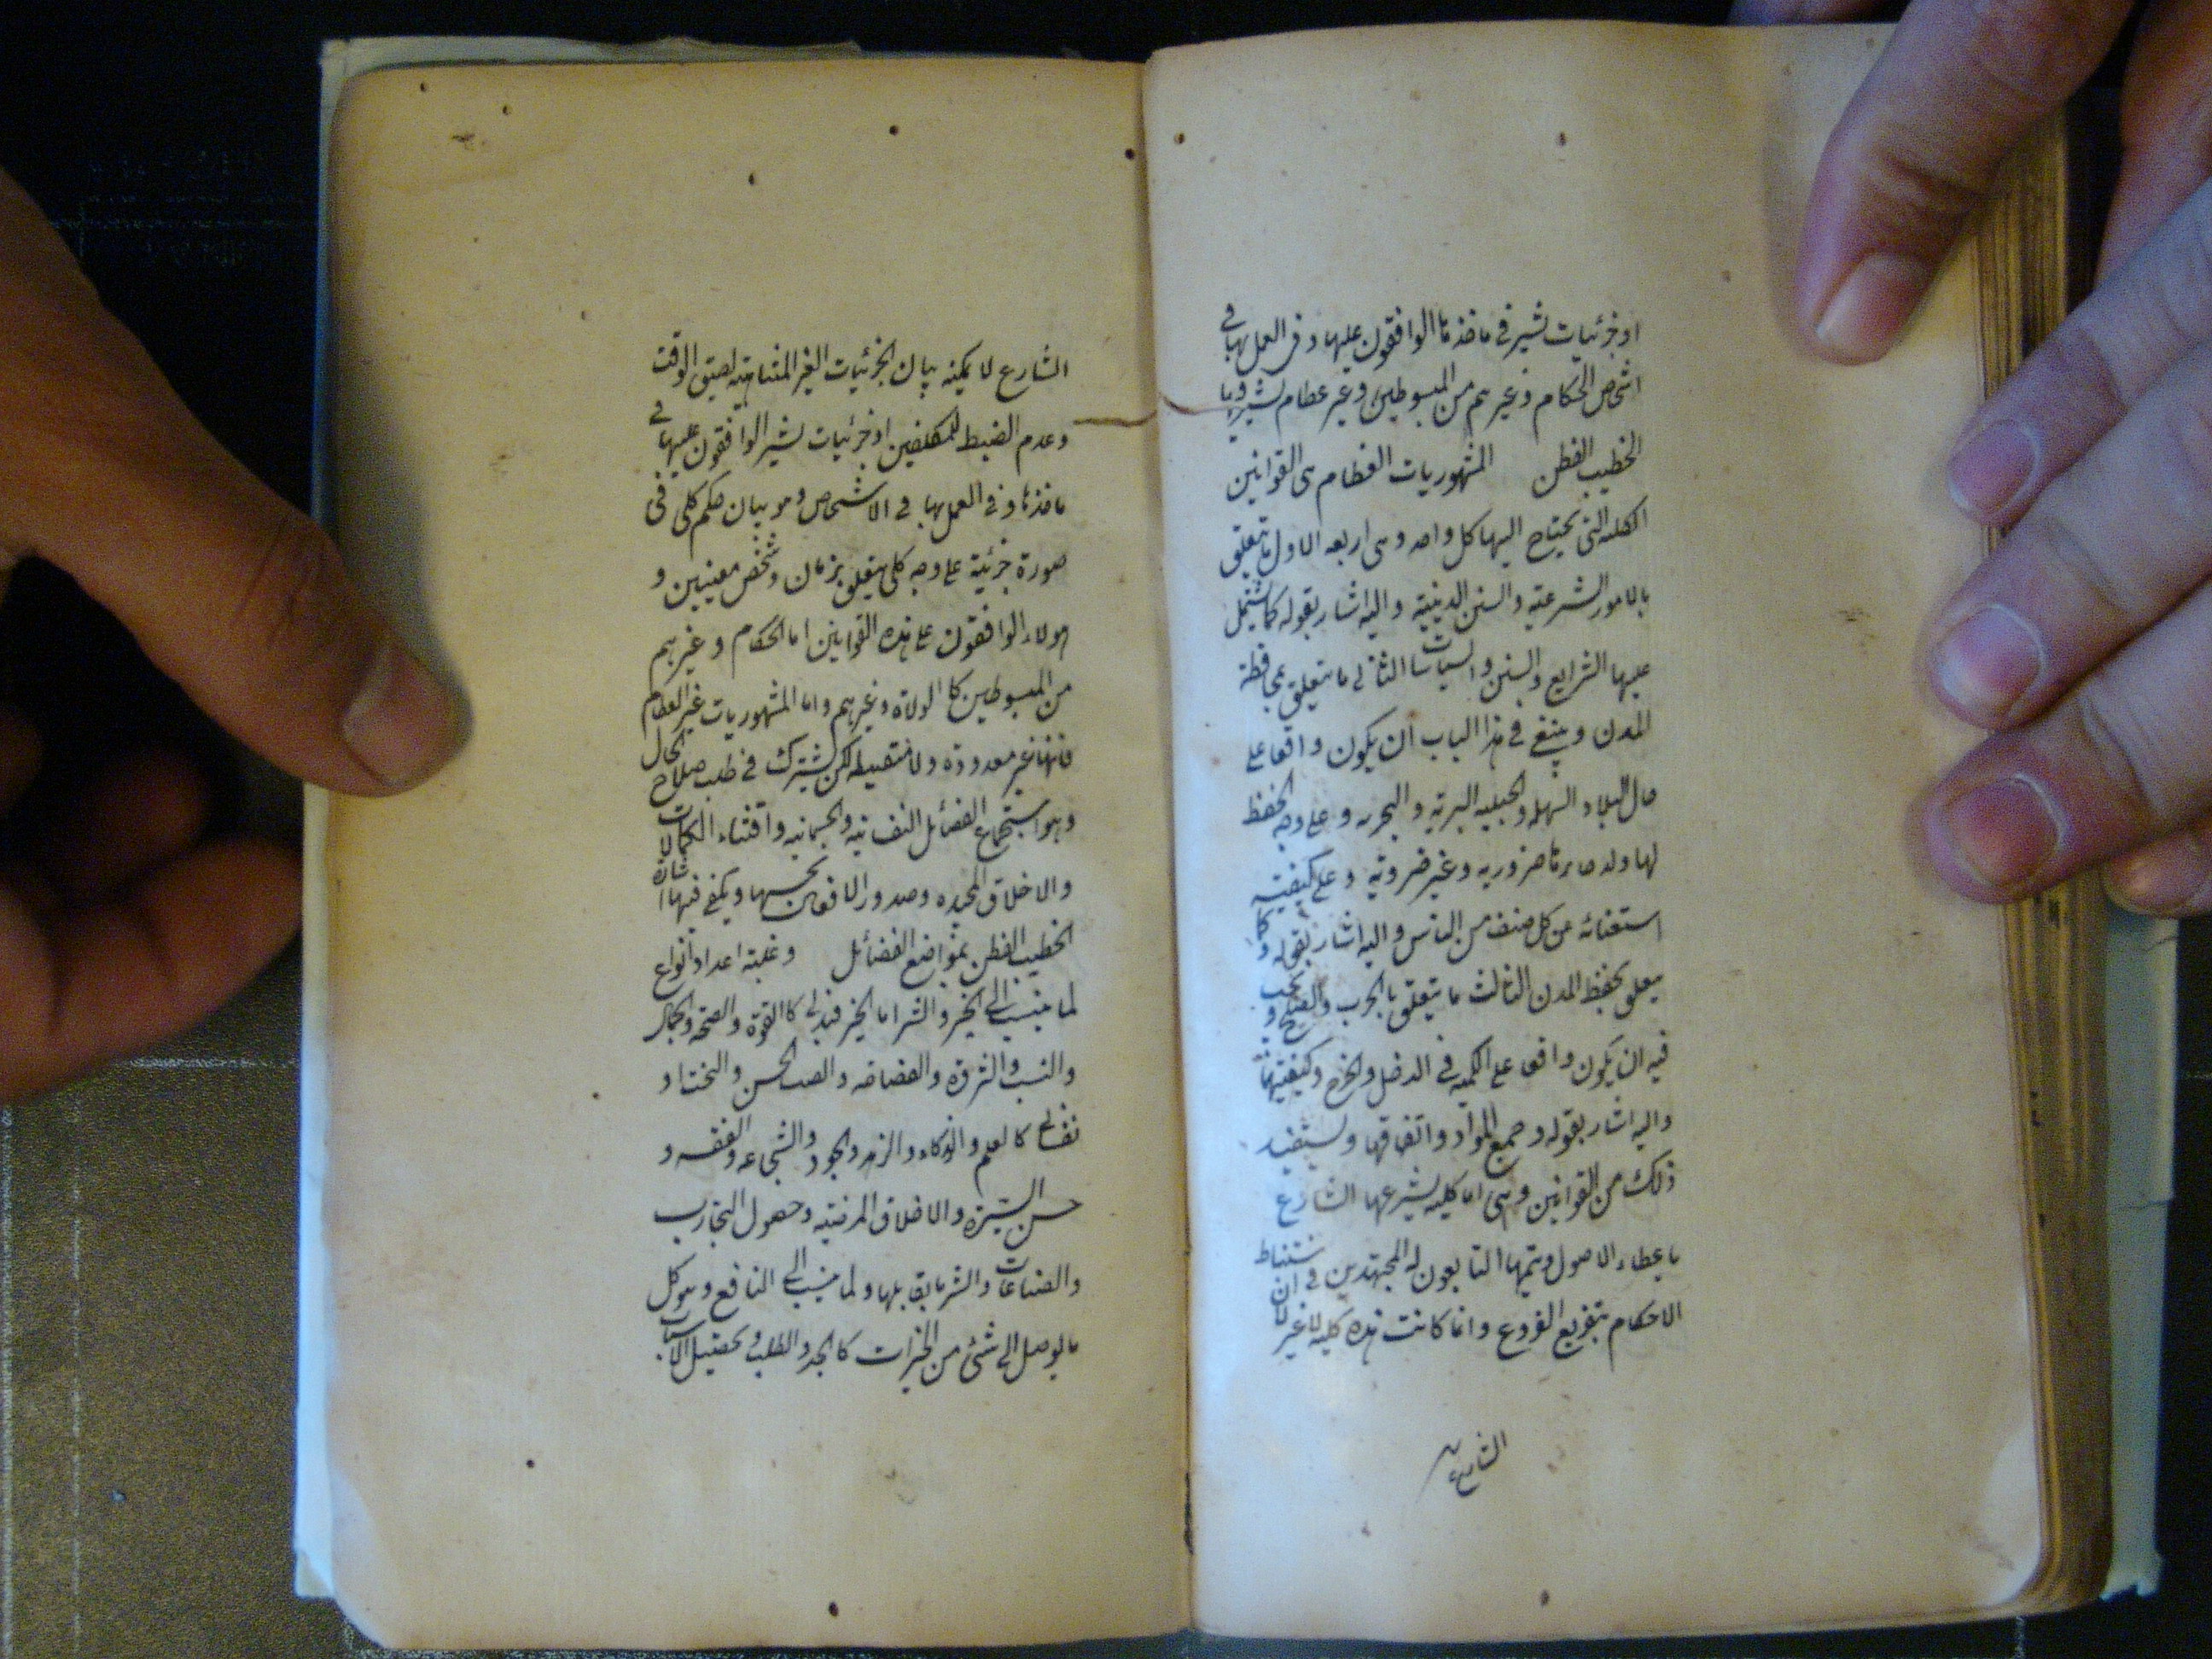 او جزئيات يشير فى ماخذها الواقفون عليها و فى العمل بها فى
اشخاص الحكام و غيرهم من المبسوطين و غير عظام يشير
الخطيب الفطن المشهوريات العظام هى القوانين
الكلية التى يحتاج اليها كل واحد و هى اربعه الاول ما يتعلق
بالامور الشرعيه و السنن الدينيه و اليه اشار بقوله كما يشتمل
عليها الشرايع و السنن و السياسات الثانى ما يتعلق بمحافظة
المدن و ينبغى فى هذا الباب ان يكون واقفا على
حال البلاد السهلة و الجبلية البريه و البحريه و على وجه الحفظ
لها ضروريه و غير ضروريه و على كيفيته
استغنائه عن كل صنف من الناس و اليه اشار بقوله و كما
يتعلق بحفظ المدن الثالث ما يتعلق بالحرب و الصلح و يجب
فيه ان يكون واقفا على الكميه فى الدخل و الخرج و كيفيتهما
و اليه اشار بقوله و جميع المواد و اتفاقها و يستفيد
ذلك من القوانين و هى اما كليه يشرعها الشارع
باعطاء الاصول و يتمها التابعون له المجتهدين فى استنباط
الاحكام بتفريع الفروع و انما كانت هذه كليه لا غير لان
الشارع
الشارع لا يمكنه بيان الجزئيات الغير المتناهيه لضيق الوقت
و عدم الضبط للمكلفين او جزئيات يشير الواقفون عليها فى
ماخذها و فى العمل بها فى الاشخاص و هو بيان حكم كلى فى
صورة جزئية على وجه كلى يتعلق بزمان و شخص معينين و
هولاء الواقفون على هذه القوانين اما الحكام و غيرهم
من المبسوطين كالولاة و غيرهم و اما المشهوريات غير العظام
فانها غير معدودة و لا منضبطه لكن يشترك فى طلب صلاح الحال
و هو استجماع الفضائل النفسانيه و الجسمانيه و اقتناء الكمالات
و الاخلاق الحميده و صدور الافعال بحسبها و يكفى فيها اشارة
الخطيب الفطن بمواضع الفضائل و عليه اعداد انواع
لما ينسب الى الخير و الشر اما الخير فبدنى كالقوة و الصحة و الجمال
و النسب و الثروة و الفصاحه و الصيت الحسن و البخت او
نفسانى كالعلم و الذكاء و الزهد و الجود و الشجاعه و العفه و
حسن السيرة و الاخلاق المرضيه و حصول التجارب
و الصناعات و الشر ما يقابلها و لما ينسب الى النافع و هو كل
ما يوصل الى شئ من الخيرات كالجد و الطلب و تحصيل الاسباب